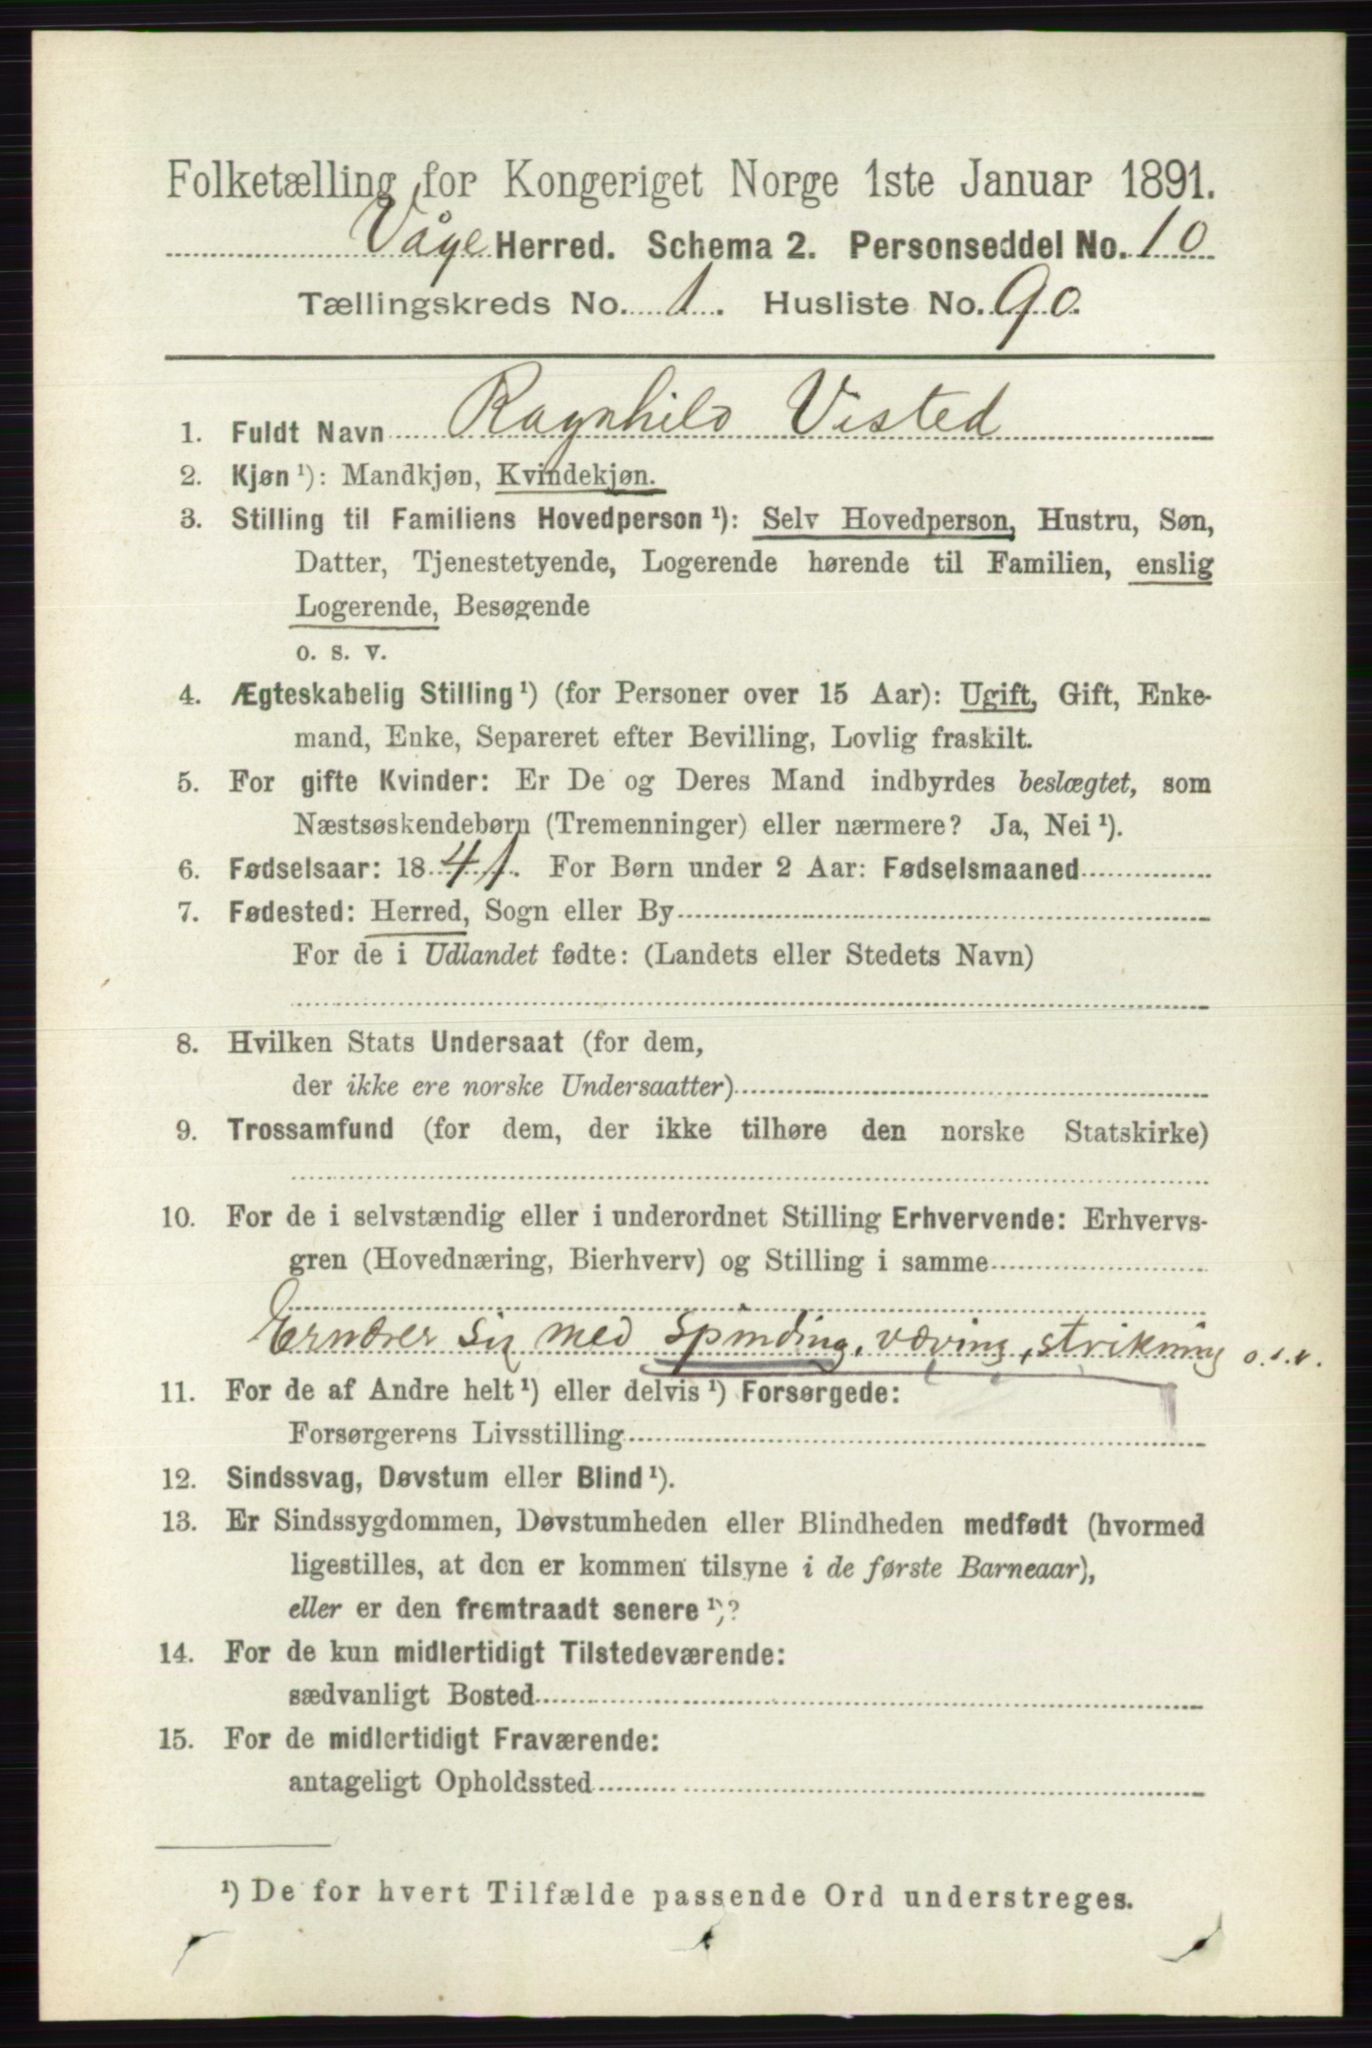 Folketælling for Kongeriget Norge 1ste Januar 1891.
Våge Herred. Schema 2. Personseddel No. 10
Tællingskreds No. 1. Husliste No. 90.
1. Fuldt Navn Ragnhild Visted
2. Kjøn ¹): Mandkjøn, Kvindekjøn.
3. Stilling til Familiens Hovedperson ¹): Selv Hovedperson, Hustru, Søn,
Datter, Tjenestetyende, Logerende hørende til Familien, enslig
Logerende, Besøgende
o. s. v.
4. Ægteskabelig Stilling ¹) (for Personer over 15 Aar): Ugift, Gift, Enke-
mand, Enke, Separeret efter Bevilling, Lovlig fraskilt.
5. For gifte Kvinder: Er De og Deres Mand indbyrdes beslægtet, som
Næstsøskendebørn (Tremenninger) eller nærmere? Ja, Nei ¹).
6. Fødselsaar: 1841. For Børn under 2 Aar: Fødselsmaaned
7. Fødested: Herred, Sogn eller By
For de i Udlandet fødte: (Landets eller Stedets Navn)
8. Hvilken Stats Undersaat (for dem,
der ikke ere norske Undersaatter)
9. Trossamfund (for dem, der ikke tilhøre den norske Statskirke)
10. For de i selvstændig eller i underordnet Stilling Erhvervende: Erhvervs-
gren (Hovednæring, Bierhverv) og Stilling i samme
Ernærer sig med spinding, væving, strikning o.s.v.
11. For de af Andre helt ¹) eller delvis ¹) Forsørgede:
Forsørgerens Livsstilling
12. Sindssvag, Døvstum eller Blind ¹).
13. Er Sindssygdommen, Døvstumheden eller Blindheden medfødt (hvormed
ligestilles, at den er kommen tilsyne i de første Barneaar),
eller er den fremtraadt senere ¹)?
14. For de kun midlertidigt Tilstedeværende:
sædvanligt Bosted
15. For de midlertidigt Fraværende:
antageligt Opholdssted
¹) De for hvert Tilfælde passende Ord understreges.